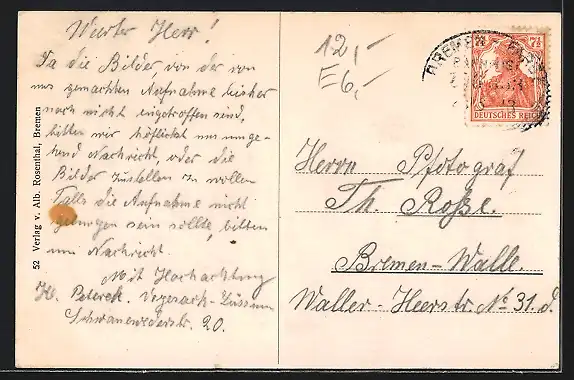 Werter Herr!
Da die Bilder, von der von
uns gemachten Aufnahme bisher
noch nicht eingetroffen sind,
bitten wir höflichst um umge-
hend Nachricht, oder die
Bilder zustellen zu wollen
Falls die Aufnahme nicht
gelungen sein sollte, bitten
um Nachricht.
Mit Hochachtung
H. Vegesack-
Schwanewederstr. 20.
52 Verlag v. Alb. Rosenthal, Bremen
12,-
E 6,-
BREMEN
7½ 7½
DEUTSCHES REICH
Herrn Phtotograf
Th. Roße.
Bremen-Walle.
Waller-Heerstr. No 31. d.